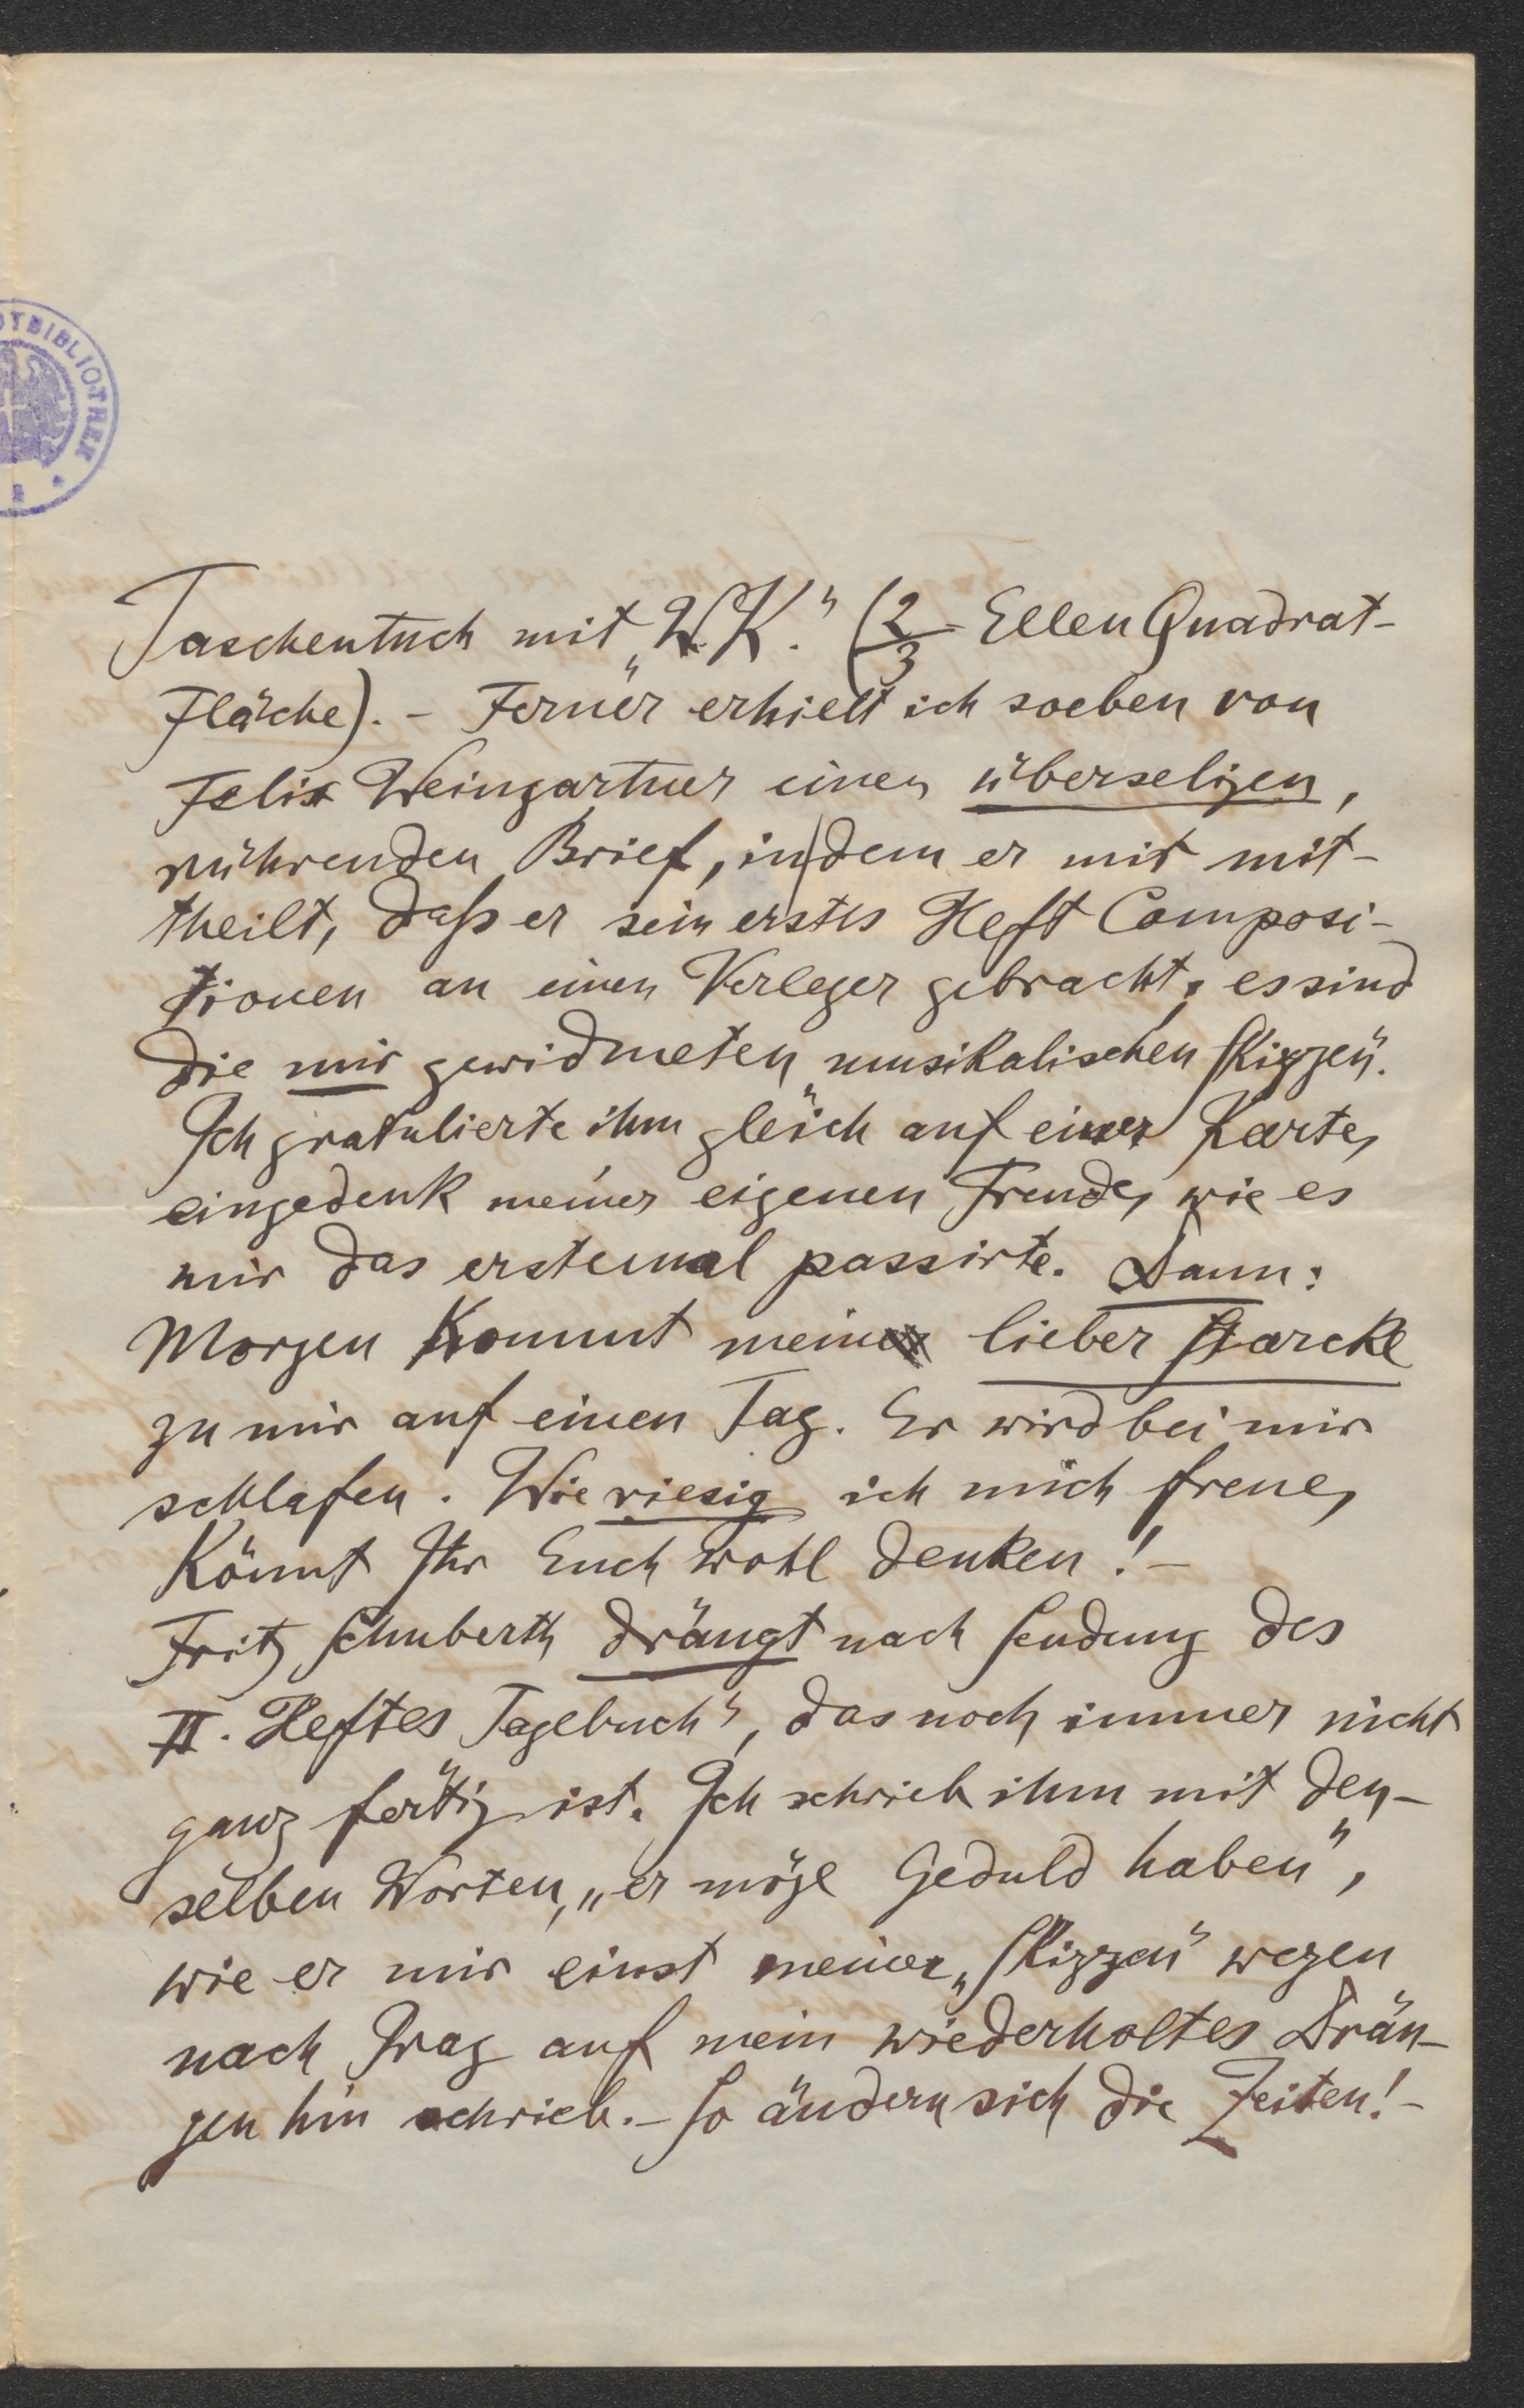 OTBIBLIOTHEK
Taschentuch mit „W.K." (2/3 Ellen Quadrat-
Fläche). - Ferner erhielt ich soeben von
Felix Weingartner einen überseligen,
rührenden Brief, in dem er mir mit-
theilt, daß er sein erstes Heft Composi-
tionen an einen Verleger gebracht, es sind
die mir gewidmeten „musikalischen Skizzen".
Ich gratulierte ihm gleich auf einer Karte,
eingedenk meiner eigenen Freude, wie es
mir das erstemal passirte. Dann:
Morgen kommt mein lieber Starcke
zu mir auf einen Tag. Er wird bei mir
schlafen. Wie riesig ich mich freue,
könnt Ihr Euch wohl denken! -
Fritz Schuberth drängt nach Sendung des
II. Heftes Tagebuch", das noch immer nicht
ganz fertig ist. Ich schrieb ihm mit den-
selben Worten, „er möge Geduld haben",
wie er mir einst meiner „Skizzen" wegen
nach Prag auf mein wiederholtes Drän-
gen hin schrieb. - So ändern sich die Zeiten! -